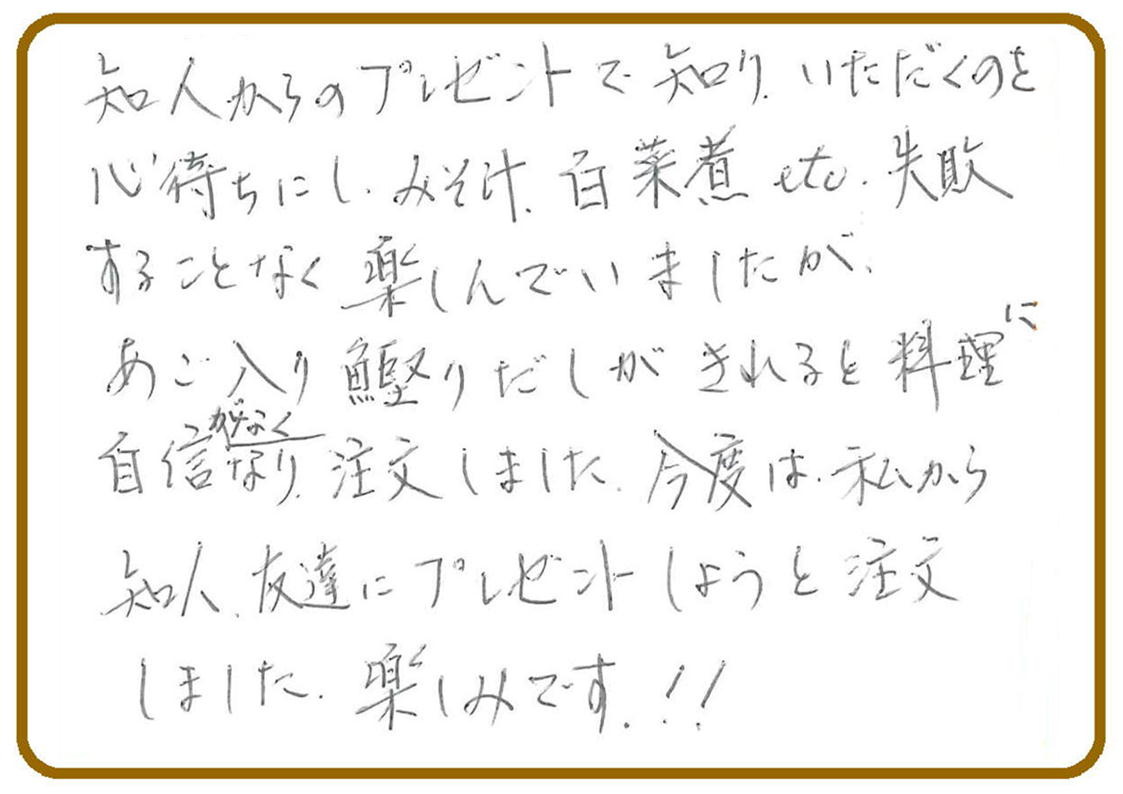 知人からのプレゼントで知り、いただくのを
心待ちにし、みそ汁、白菜煮etc.失敗
することなく楽しんでいましたが、
あご入り鰹りだしがきれると料理に
自信がなくなり、注文しました。今度は、私から
知人、友達にプレゼントしようと注文
しました。楽しみです。!!